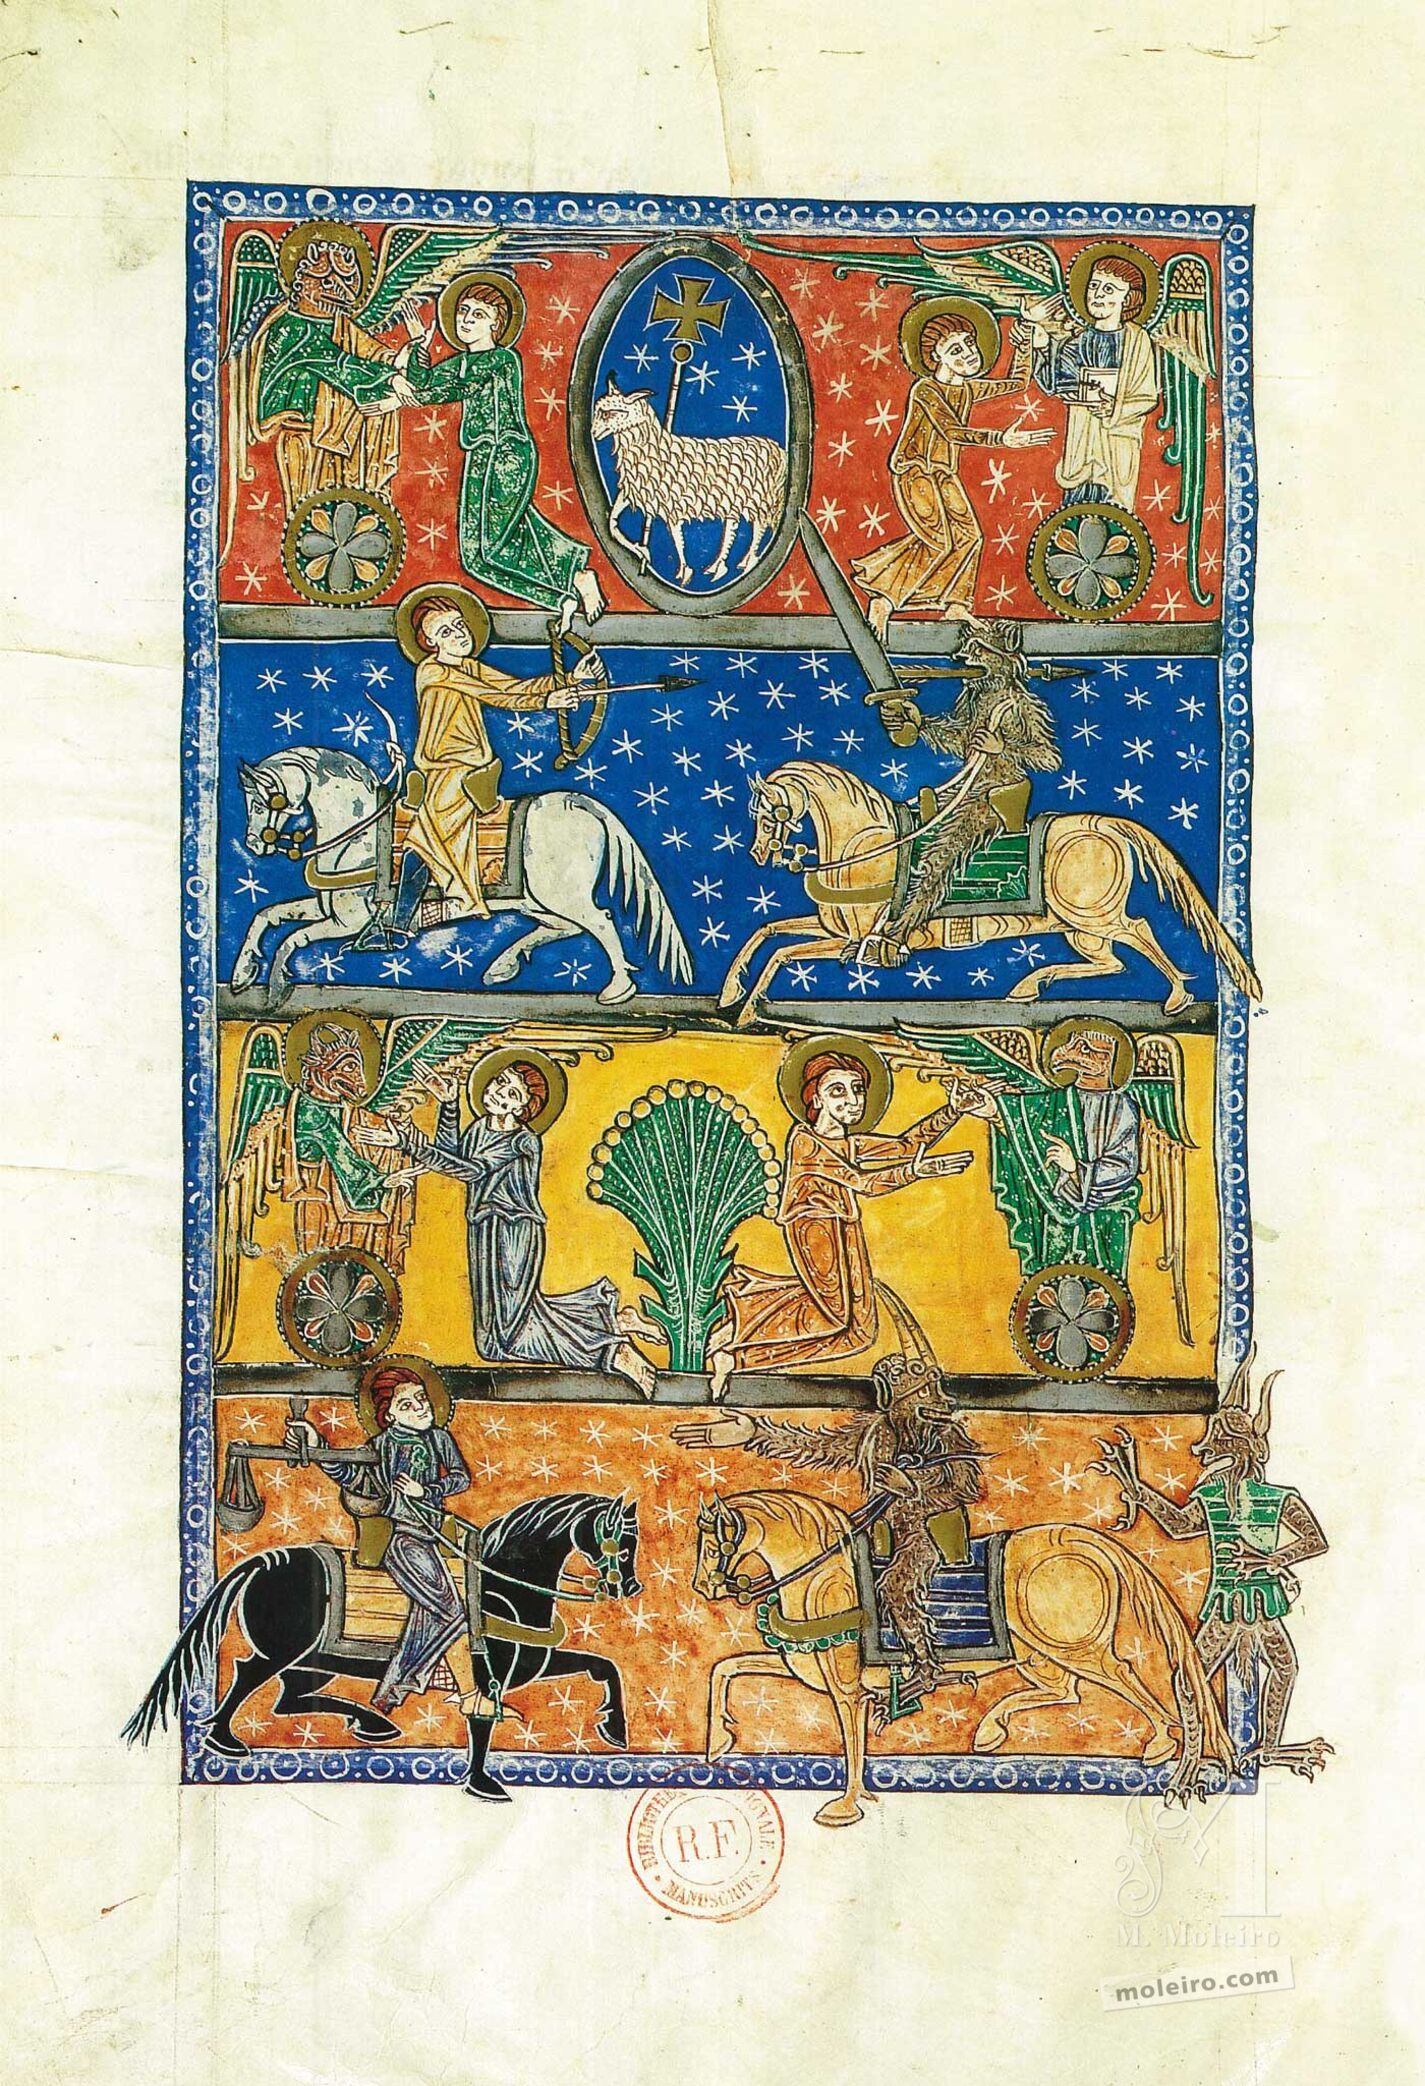 BIBLIOTHEQUE NATIONALE
R.F.
MANUSCRITS
M. Moleiro
moleiro.com